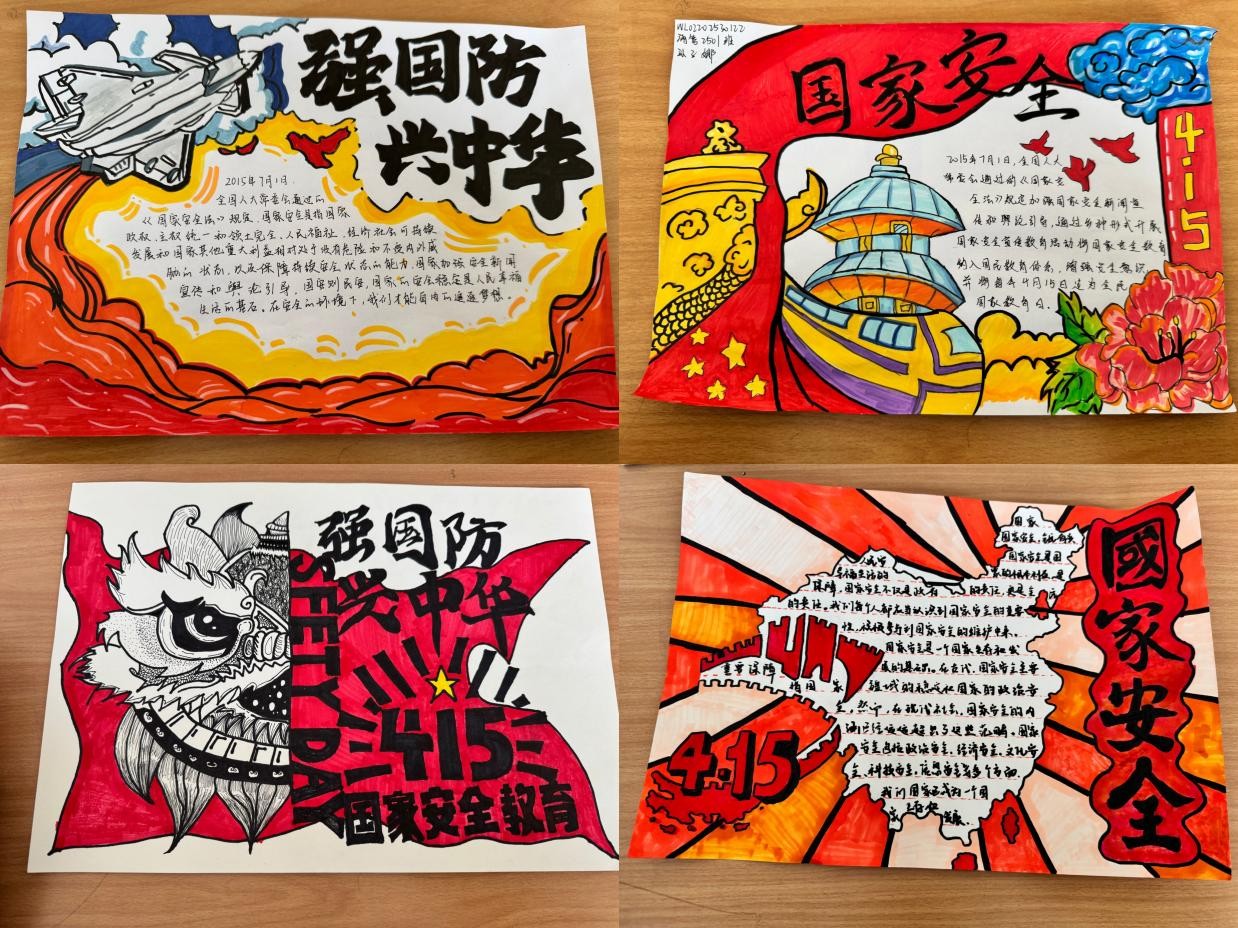 强国防
兴中华
2015年7月1日.
全国人大常委会通过的
《国家安全法》规定,国家安全是指国家
政权、主权统一和领土完全、人民福祉、经济社会可持续
发展和国家其他重大利益相对处于没有危险和不受内外威
胁的状态,以及保障持续安全状态的能力,国家加强安全新闻
宣传和舆论引导,国安则民安,国家的安全稳定是人民幸福
生活的基石。在安全的环境下,我们才能自由的追逐梦想。
NL02202530122
销售2501班
国家安全
4·15
2015年7月1日,全国人大
常委会通过的《国家安
全法》规定加强国家安全新闻宣
传和舆论引导,通过多种形式开展
国家安全宣传教育活动将国家安全教育
纳入国民教育体系,增强安全意识,
并将每年4月15日定为全民
国家教育日。
强国防
兴中华
SEFTY DAY
415
国家安全教育
國家安全
4.15
国家
国家安全是国
人民幸
幸福生活的
保障,国家安全不仅是政府的责任,也是全民
的责任。我们每个人都应当认识到国家安全的重要
性,积极参与到国家安全的维护中来。
国家安全是一个国家生存和发
展的基石。在古代,国家安全主要
重要保障 指国家
疆域的稳定和国家的政治安
全,然而,在现代社会,国家安全的内
涵已经远远超出了这些范畴。国家
安全包括政治安全、经济安全、文化安
全、科技安全、信息安全等多个方面,
我们国家已成为一个国
发展.